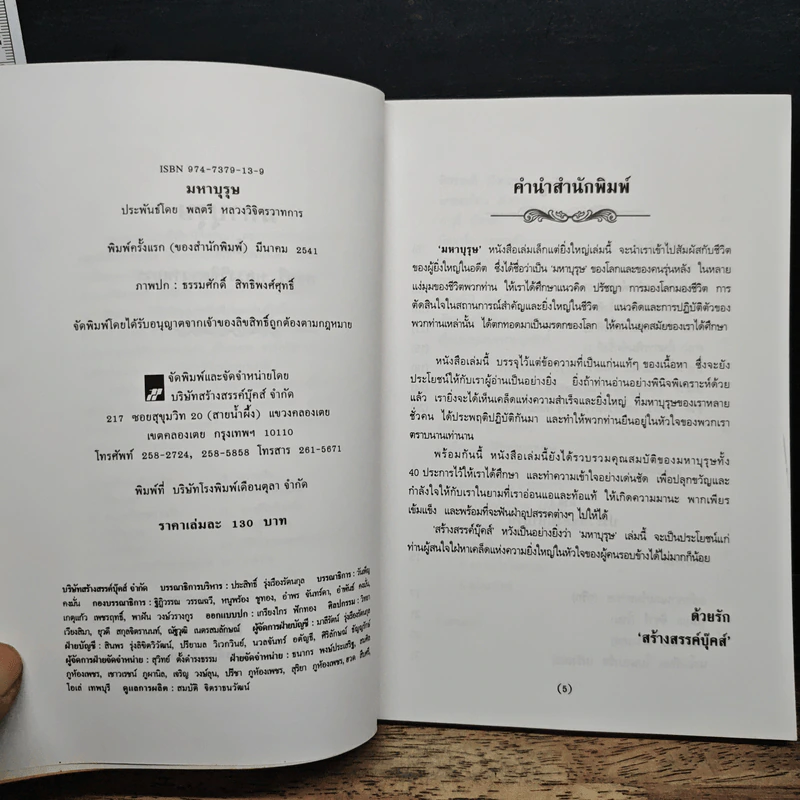 ISBN 974-7379-13-9
มหาบุรุษ
ประพันธ์โดย พลตรี หลวงวิจิตรวาทการ
พิมพ์ครั้งแรก (ของสำนักพิมพ์) มีนาคม 2541
ภาพปก : ธรรมศักดิ์ สิทธิพงศ์ศุทธิ์
จัดพิมพ์โดยได้รับอนุญาตจากเจ้าของลิขสิทธิ์ถูกต้องตามกฎหมาย
จัดพิมพ์และจัดจำหน่ายโดย
บริษัทสร้างสรรค์บุ๊คส์ จำกัด
217 ซอยสุขุมวิท 20 (สายน้ำผึ้ง) แขวงคลองเตย
เขตคลองเตย กรุงเทพฯ 10110
โทรศัพท์ 258-2724, 258-5858 โทรสาร 261-5671
พิมพ์ที่ บริษัทโรงพิมพ์เดือนตุลา จำกัด
ราคาเล่มละ 130 บาท
บริษัทสร้างสรรค์บุ๊คส์ จำกัด บรรณาธิการบริหาร : ประสิทธิ์ รุ่งเรืองรัตนกุล บรรณาธิการ : วันเพ็ญ
คงมั่น กองบรรณาธิการ : ฐิฏิวรรณ วรรณฉวี, หนูพร้อง ชูทอง, อำพร จันทร์ดา, อำพันธ์ คงมั่น,
เกตุแก้ว เพชรฤทธิ์, พาฝัน วงษ์วรางกูร ออกแบบปก : เกรียงไกร ฟักทอง ศิลปกรรม : วิทยา
เรืองสิมา, ยุวดี สกุลจิตรานนท์, ณัฐวุฒิ เนตรสมลักษณ์ ผู้จัดการฝ่ายบัญชี : มาลีรัตน์ รุ่งเรืองรัตนกุล
ฝ่ายบัญชี : สินพร รุ่งลิขิตวิวัฒน์, ปรียามล วิเวกวินย์, นวลจันทร์ อดัญชี, ศิริลักษณ์
ผู้จัดการฝ่ายจัดจำหน่าย : สุวิทย์ ตั้งดำรงธรรม ฝ่ายจัดจำหน่าย : ธนากร พงษ์ประเสริฐ,
ภูห้องเพชร, เชาวเรขน์ ภูผานิล, เจริญ วงษ์ลุน, ปรีชา ภูห้องเพชร, สุริยา ภูห้องเพชร,
ไอเล่ เทพบุรี ดูแลการผลิต : สมบัติ จิตราธนวัฒน์
คำนำสำนักพิมพ์
'มหาบุรุษ' หนังสือเล่มเล็กแต่ยิ่งใหญ่เล่มนี้ จะนำเราเข้าไปสัมผัสกับชีวิต
ของผู้ยิ่งใหญ่ในอดีต ซึ่งได้ชื่อว่าเป็น 'มหาบุรุษ' ของโลกและของคนรุ่นหลัง ในหลาย
แง่มุมของชีวิตพวกท่าน ให้เราได้ศึกษาแนวคิด ปรัชญา การมองโลกมองชีวิต การ
ตัดสินใจในสถานการณ์สำคัญและยิ่งใหญ่ในชีวิต แนวคิดและการปฏิบัติตัวของ
พวกท่านเหล่านั้น ได้ตกทอดมาเป็นมรดกของโลก ให้คนในยุคสมัยของเราได้ศึกษา
หนังสือเล่มนี้ บรรจุไว้แต่ข้อความที่เป็นแก่นแท้ๆ ของเนื้อหา ซึ่งจะยัง
ประโยชน์ให้กับเราผู้อ่านเป็นอย่างยิ่ง ยิ่งถ้าท่านอ่านอย่างพินิจพิเคราะห์ด้วย
แล้ว เรายิ่งจะได้เห็นเคล็ดแห่งความสำเร็จและยิ่งใหญ่ ที่มหาบุรุษของเราหลาย
ชั่วคน ได้ประพฤติปฏิบัติกันมา และทำให้พวกท่านยืนอยู่ในหัวใจของพวกเรา
ตราบนานเท่านาน
พร้อมกันนี้ หนังสือเล่มนี้ยังได้รวบรวมคุณสมบัติของมหาบุรุษทั้ง
40 ประการไว้ให้เราได้ศึกษา และทำความเข้าใจอย่างเด่นชัด เพื่อปลุกขวัญและ
กำลังใจให้กับเราในยามที่เราอ่อนแอและท้อแท้ ให้เกิดความมานะ พากเพียร
เข้มแข็ง และพร้อมที่จะฟันฝ่าอุปสรรคต่างๆ ไปให้ได้
'สร้างสรรค์บุ๊คส์' หวังเป็นอย่างยิ่งว่า 'มหาบุรุษ' เล่มนี้ จะเป็นประโยชน์แก่
ท่านผู้สนใจใฝ่หาเคล็ดแห่งความยิ่งใหญ่ในหัวใจของผู้คนรอบข้างได้ไม่มากก็น้อย
ด้วยรัก
'สร้างสรรค์บุ๊คส์'
(5)